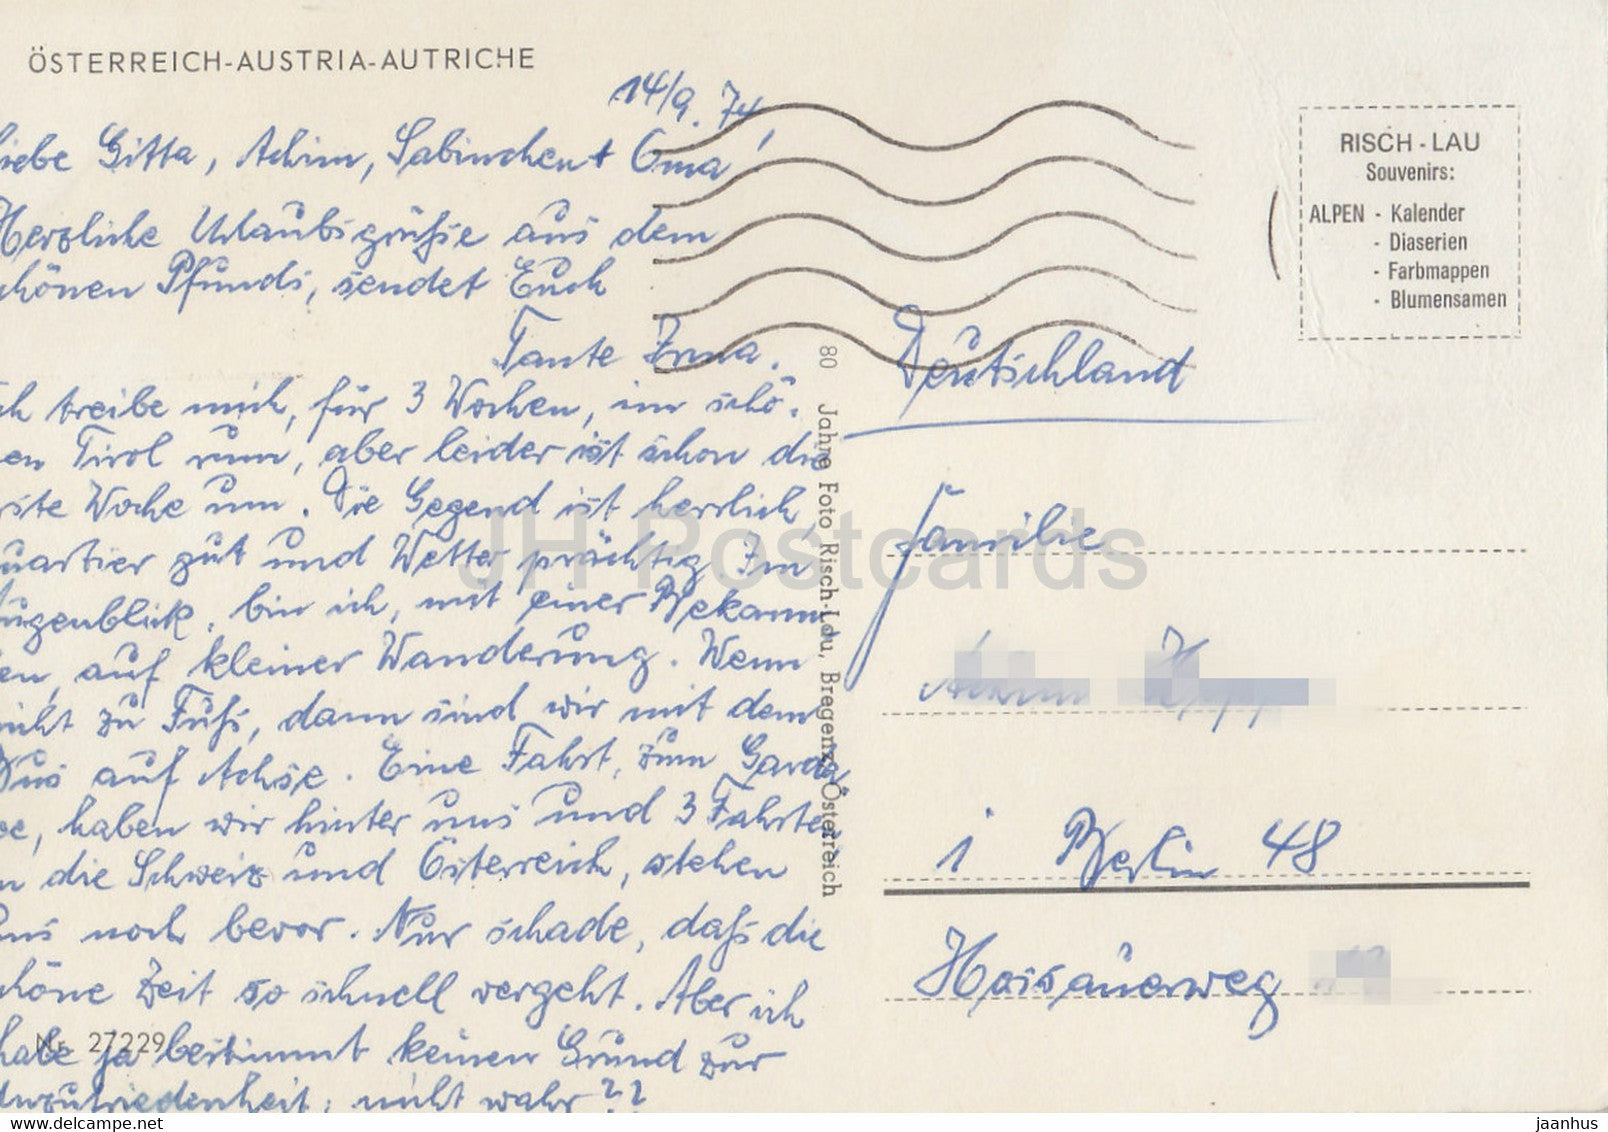 ÖSTERREICH-AUSTRIA-AUTRICHE
14/9. 74
iebe Gitta, Achim, Sabinchen + Oma!
Herzliche Urlaubsgrüße aus dem
chönen Pfunds, sendet Euch
Tante Irma.
ch treibe mich, für 3 Wochen, im schö-
en Tirol rum, aber leider ist schon die
rste Woche um. Die Gegend ist herrlich,
uartier gut und Wetter prächtig. Im
ugenblick, bin ich, mit einer Bekann-
en, auf kleiner Wanderung. Wenn
icht zu Fuß, dann sind wir mit dem
Bus auf Achse. Eine Fahrt, zum Garda
ee, haben wir hinter uns und 3 Fahrten
n die Schweiz und Österreich, stehen
uns noch bevor. Nur schade, daß die
chöne Zeit so schnell vergeht. Aber ich
habe ja bestimmt keinen Grund zur
Unzufriedenheit, nicht wahr??
Nr. 27229
80 Jahre Foto Risch-Lau, Bregenz, Österreich
RISCH-LAU
Souvenirs:
ALPEN - Kalender
- Diaserien
- Farbmappen
- Blumensamen
Deutschland
Familie
1 Berlin 48
JH Postcards
www.delcampe.net
jaanhus